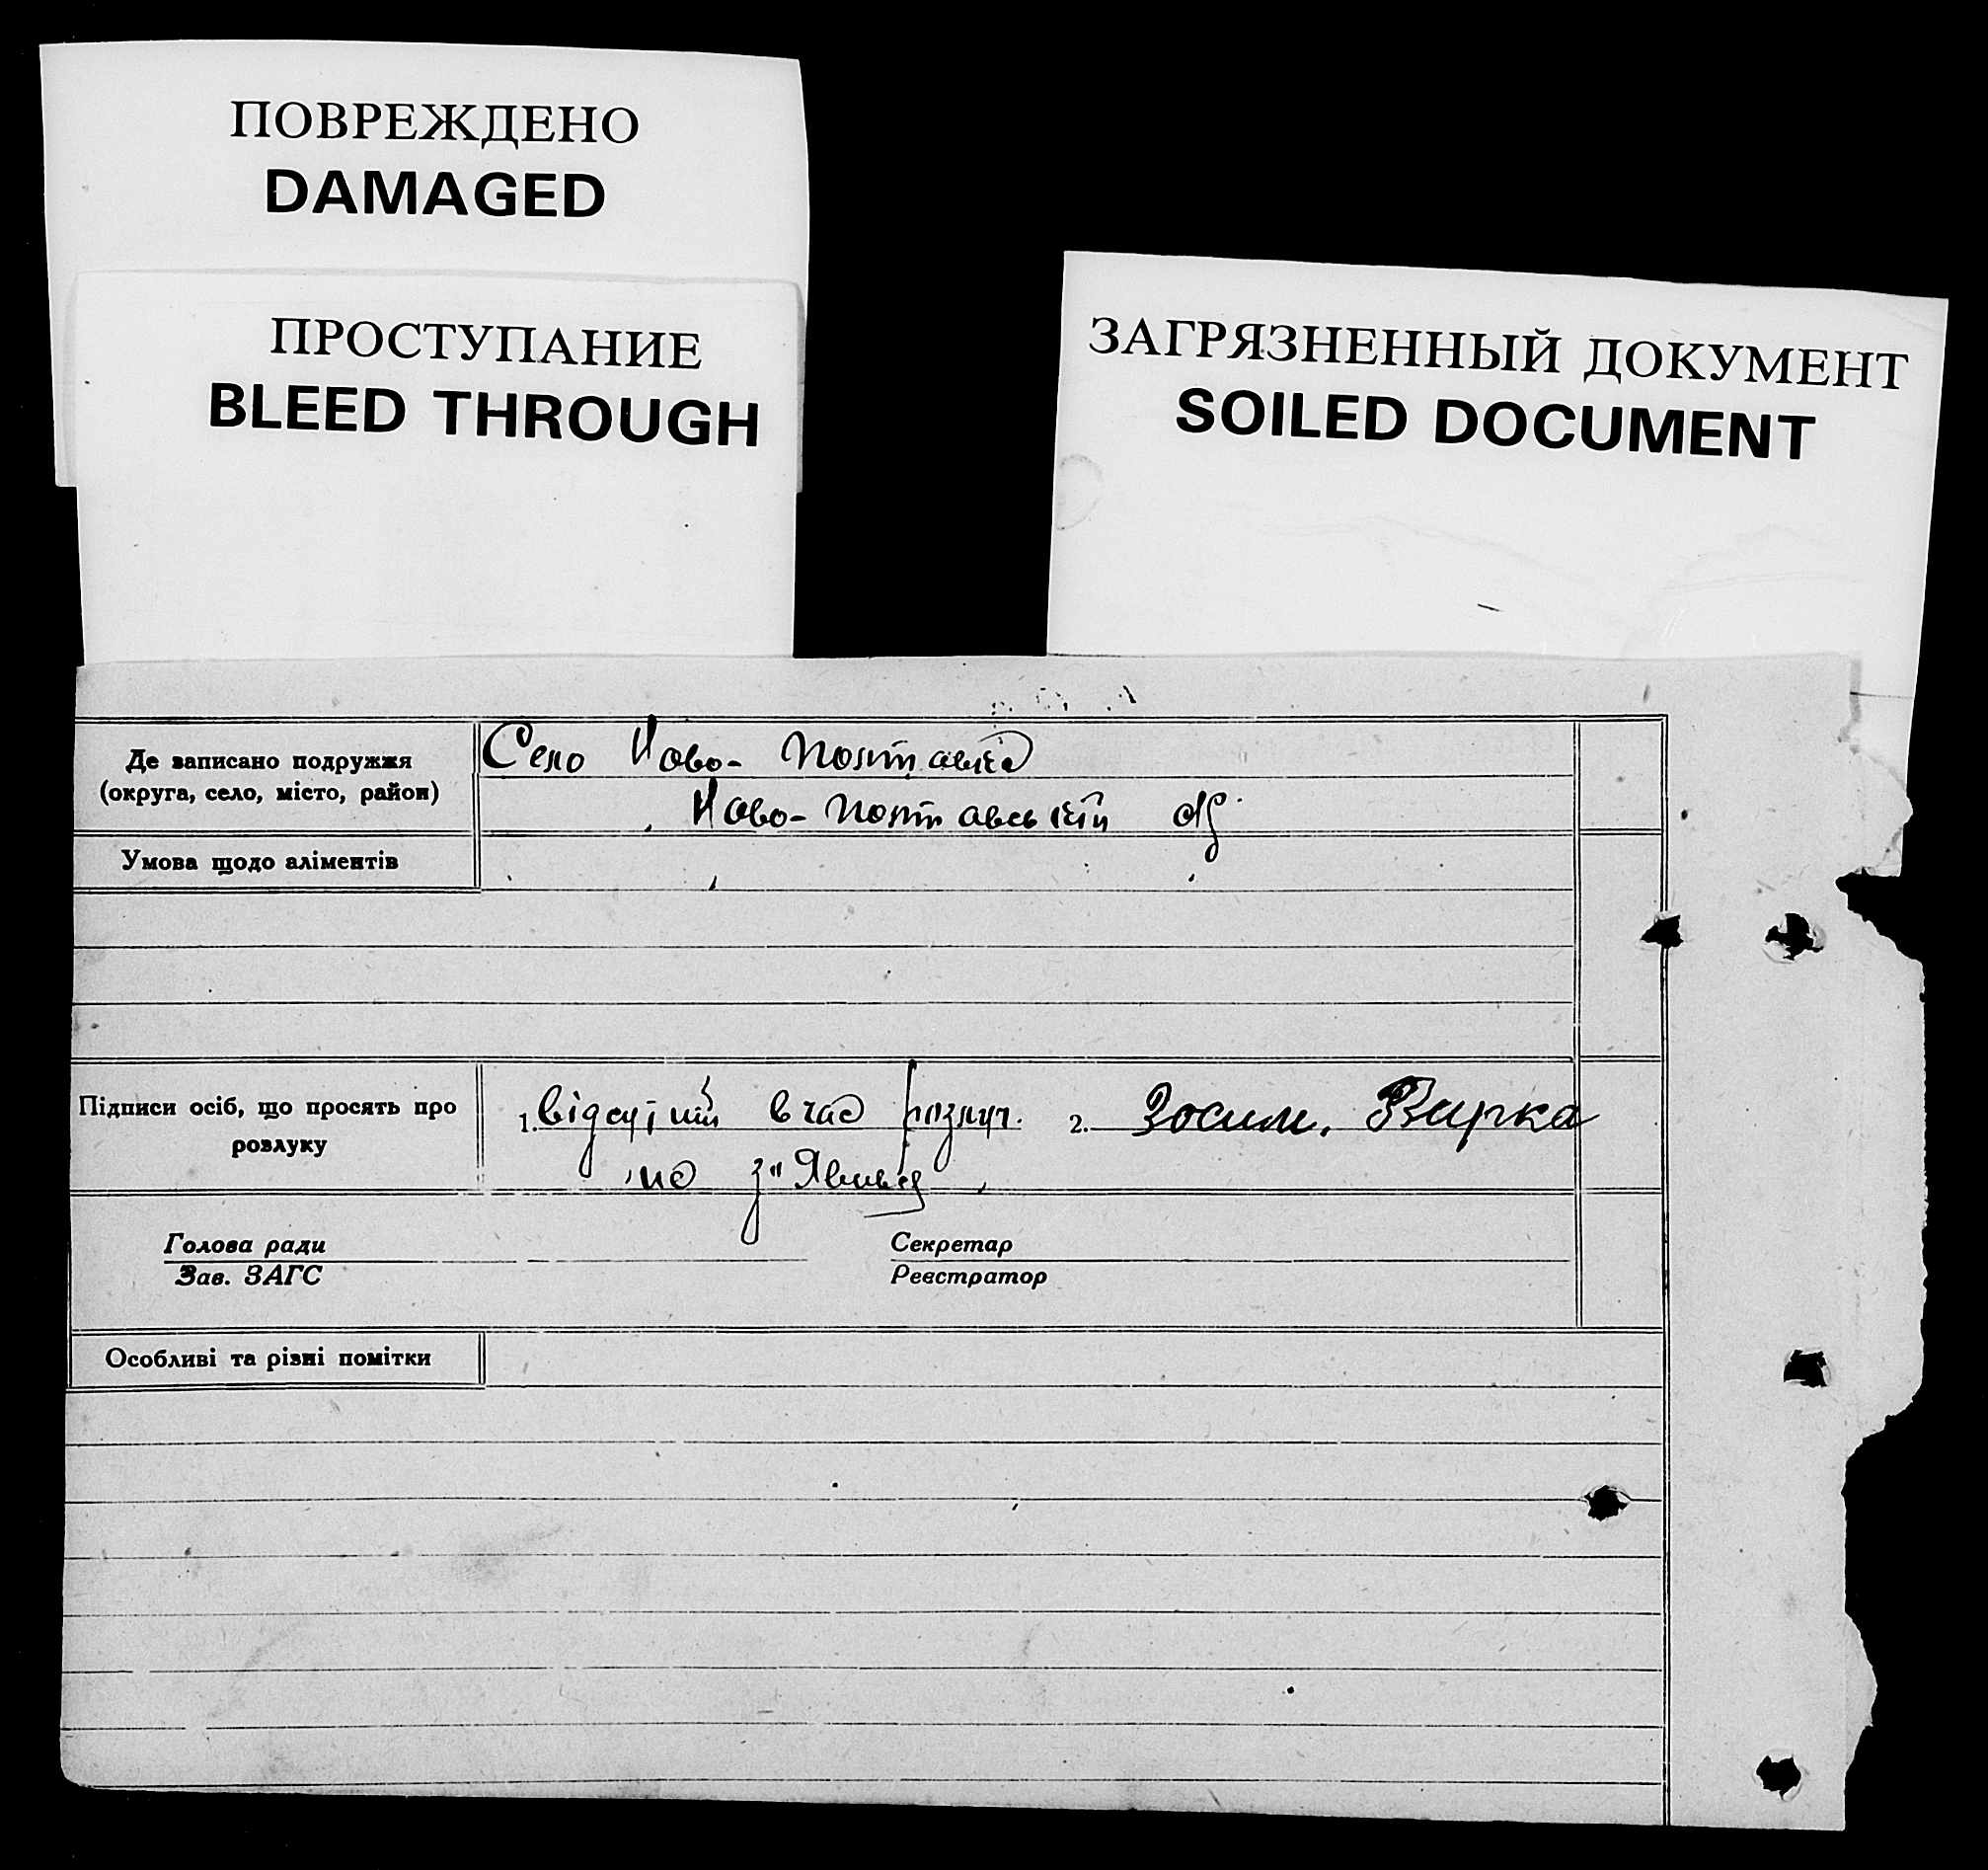 ПОВРЕЖДЕНО
DAMAGED
ПРОСТУПАНИЕ
BLEED THROUGH
ЗАГРЯЗНЕННЫЙ ДОКУМЕНТ
SOILED DOCUMENT
Де записано подружжя
(округа, село, місто, район)
Село Ново-Полтавка
Ново-Полтавській
Умова щодо аліментів
Підписи осіб, що просять про
розлуку
1. в час 2. Зосим.
Голова ради
Зав. ЗАГС
Секретар
Реєстратор
Особливі та різні помітки